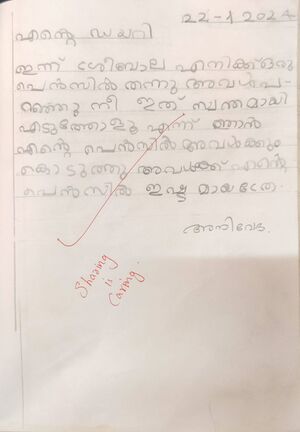 22-1 2024
എന്റെ ഡയറി
ഇന്ന് ശിബാല എനിക്ക് ഒരു
പെൻസിൽ തന്നു അവൾപ-
റഞ്ഞു നീ ഇത് സ്വന്തമായി
എടുത്തോളൂ എന്ന് ഞാൻ
എന്റെ പെൻസിൽ അവൾക്കും
കൊടുത്തു അവൾക്ക് എന്റെ
പെൻസിൽ ഇഷ്ട മായത്രേ.
അനിവേദ.
Sharing
is
Caring.